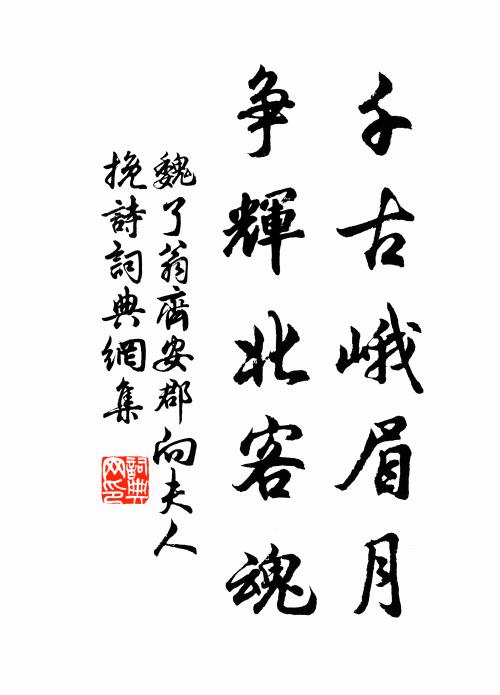 千古峨眉月
争輝北客魂
魏了翁齊安郡向夫人
挽詩詞典網集
詞典
网印